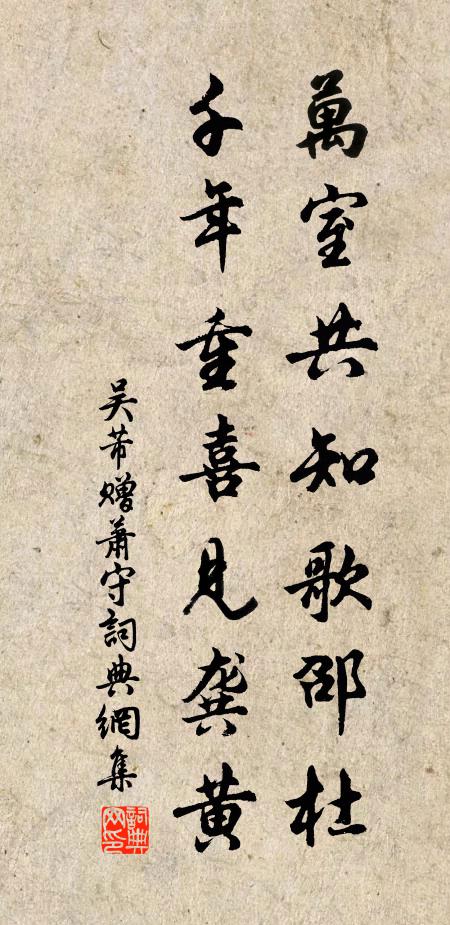 萬室共知歌邵杜
千年重喜見龔黃
吴芾贈蕭守詞典網集
詞典網印